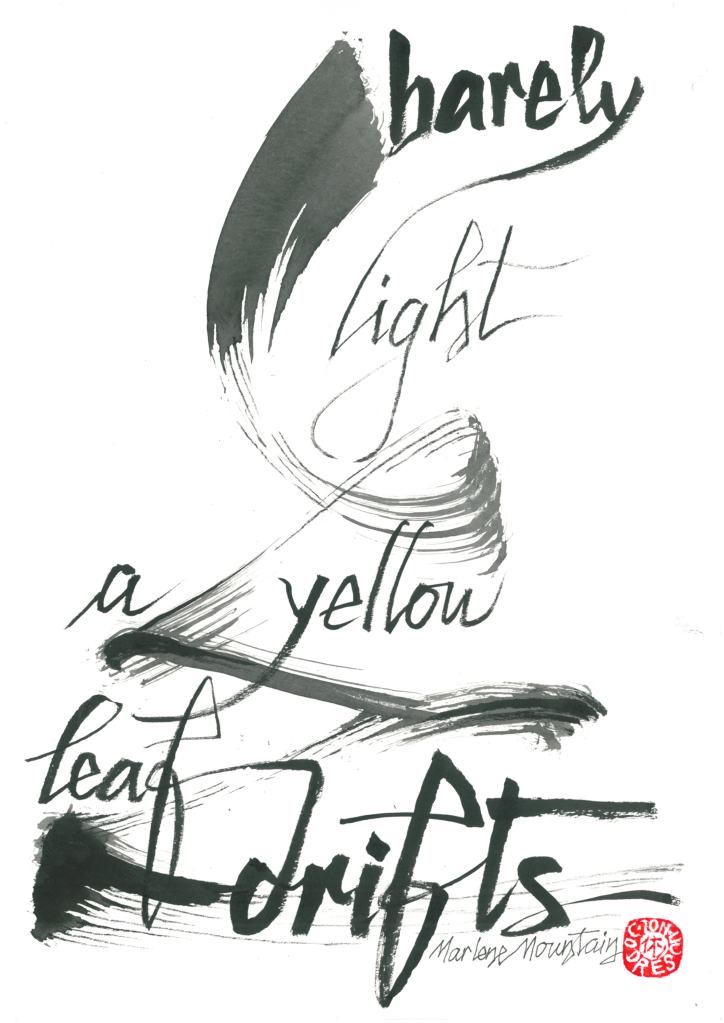 barely
light
a yellow
leaf
drifts
Marlene Mountain